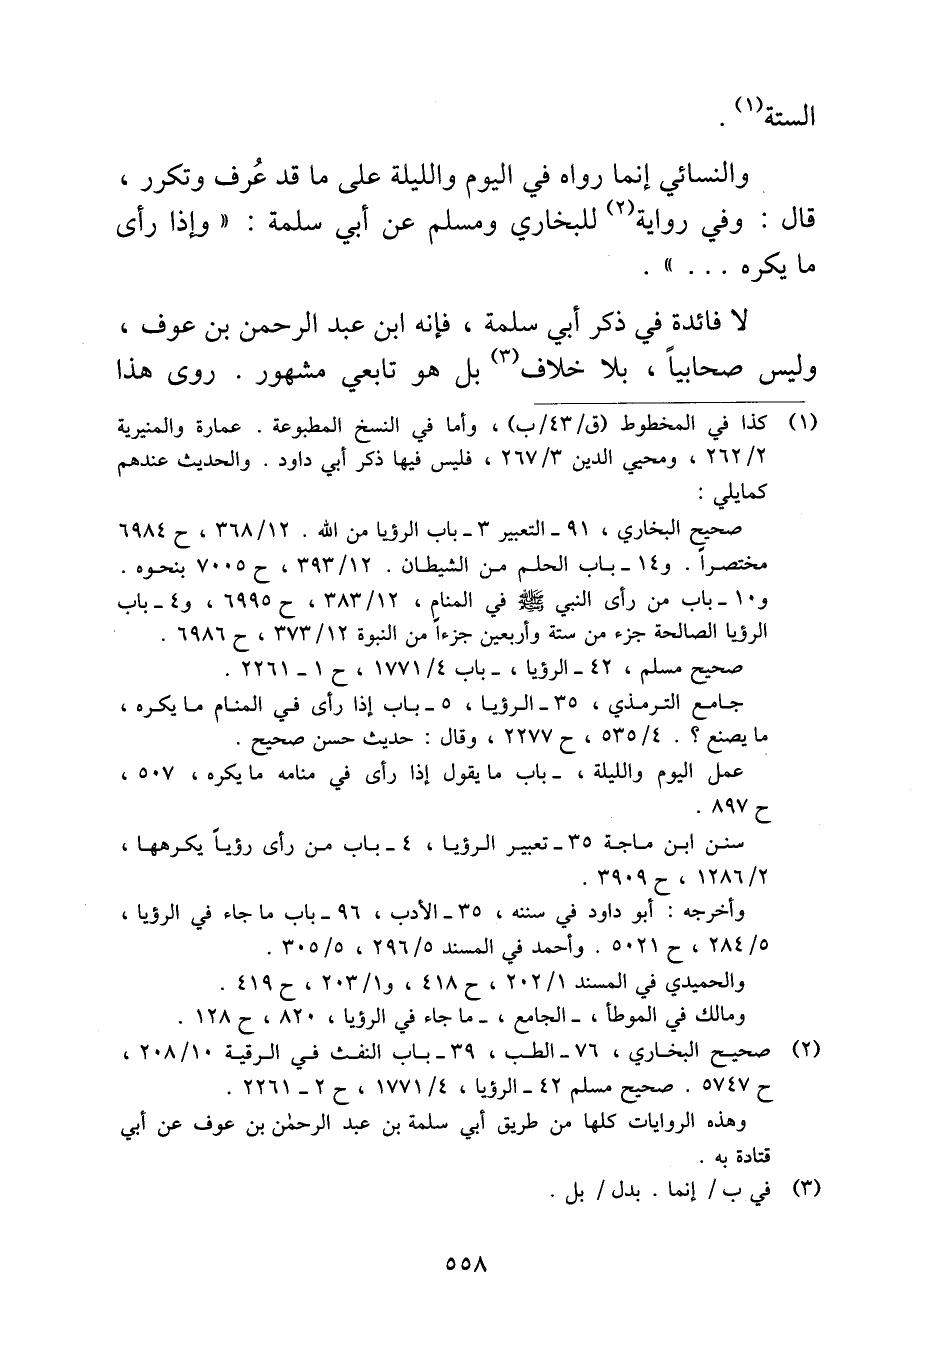 الستة(١) .
والنسائي إنما رواه في اليوم والليلة على ما قد عُرف وتكرر ،
قال : وفي رواية(٢) للبخاري ومسلم عن أبي سلمة : « وإذا رأى
ما يكره . . . » .
لا فائدة في ذكر أبي سلمة ، فإنه ابن عبد الرحمن بن عوف ،
وليس صحابياً ، بلا خلاف(٣) بل هو تابعي مشهور . روى هذا
(١) كذا في المخطوط (ق/٤٣/ب) ، وأما في النسخ المطبوعة . عمارة والمنيرية
٢/ ٢٦٢ ، ومحيي الدين ٣/ ٢٦٧ ، فليس فيها ذكر أبي داود . والحديث عندهم
كمايلي :
صحيح البخاري ، ٩١ ـ التعبير ٣ ـ باب الرؤيا من الله . ١٢/ ٣٦٨ ، ح ٦٩٨٤
مختصراً . و١٤ ـ باب الحلم من الشيطان . ١٢/ ٣٩٣ ، ح ٧٠٠٥ بنحوه .
و١٠ ـ باب من رأى النبي ﷺ في المنام ، ١٢/ ٣٨٣ ، ح ٦٩٩٥ ، و٤ ـ باب
الرؤيا الصالحة جزء من ستة وأربعين جزءاً من النبوة ١٢/ ٣٧٣ ، ح ٦٩٨٦ .
صحيح مسلم ، ٤٢ ـ الرؤيا ، ـ باب ٤/ ١٧٧١ ، ح ١ ـ ٢٢٦١ .
جامع الترمذي ، ٣٥ ـ الرؤيا ، ٥ ـ باب إذا رأى في المنام مايكره ،
ما يصنع ؟ . ٤/ ٥٣٥ ، ح ٢٢٧٧ ، وقال : حديث حسن صحيح .
عمل اليوم والليلة ، ـ باب مايقول إذا رأى في منامه مايكره ، ٥٠٧ ،
ح ٨٩٧ .
سنن ابن ماجة ٣٥ ـ تعبير الرؤيا ، ٤ ـ باب من رأى رؤياً يكرهها ،
٢/ ١٢٨٦ ، ح ٣٩٠٩ .
وأخرجه : أبو داود في سننه ، ٣٥ ـ الأدب ، ٩٦ ـ باب ماجاء في الرؤيا ،
٥/ ٢٨٤ ، ح ٥٠٢١ . وأحمد في المسند ٥/ ٢٩٦ ، ٥/ ٣٠٥ .
والحميدي في المسند ١/ ٢٠٢ ، ح ٤١٨ ، و١/ ٢٠٣ ، ح ٤١٩ .
ومالك في الموطأ ، ـ الجامع ، ـ ماجاء في الرؤيا ، ٨٢٠ ، ح ١٢٨ .
(٢) صحيح البخاري ، ٧٦ ـ الطب ، ٣٩ ـ باب النفث في الرقية ١٠/ ٢٠٨ ،
ح ٥٧٤٧ . صحيح مسلم ٤٢ ـ الرؤيا ، ٤/ ١٧٧١ ، ح ٢ ـ ٢٢٦١ .
وهذه الروايات كلها من طريق أبي سلمة بن عبد الرحمٰن بن عوف عن أبي
قتادة به .
(٣) في ب / إنما . بدل / بل .
٥٥٨